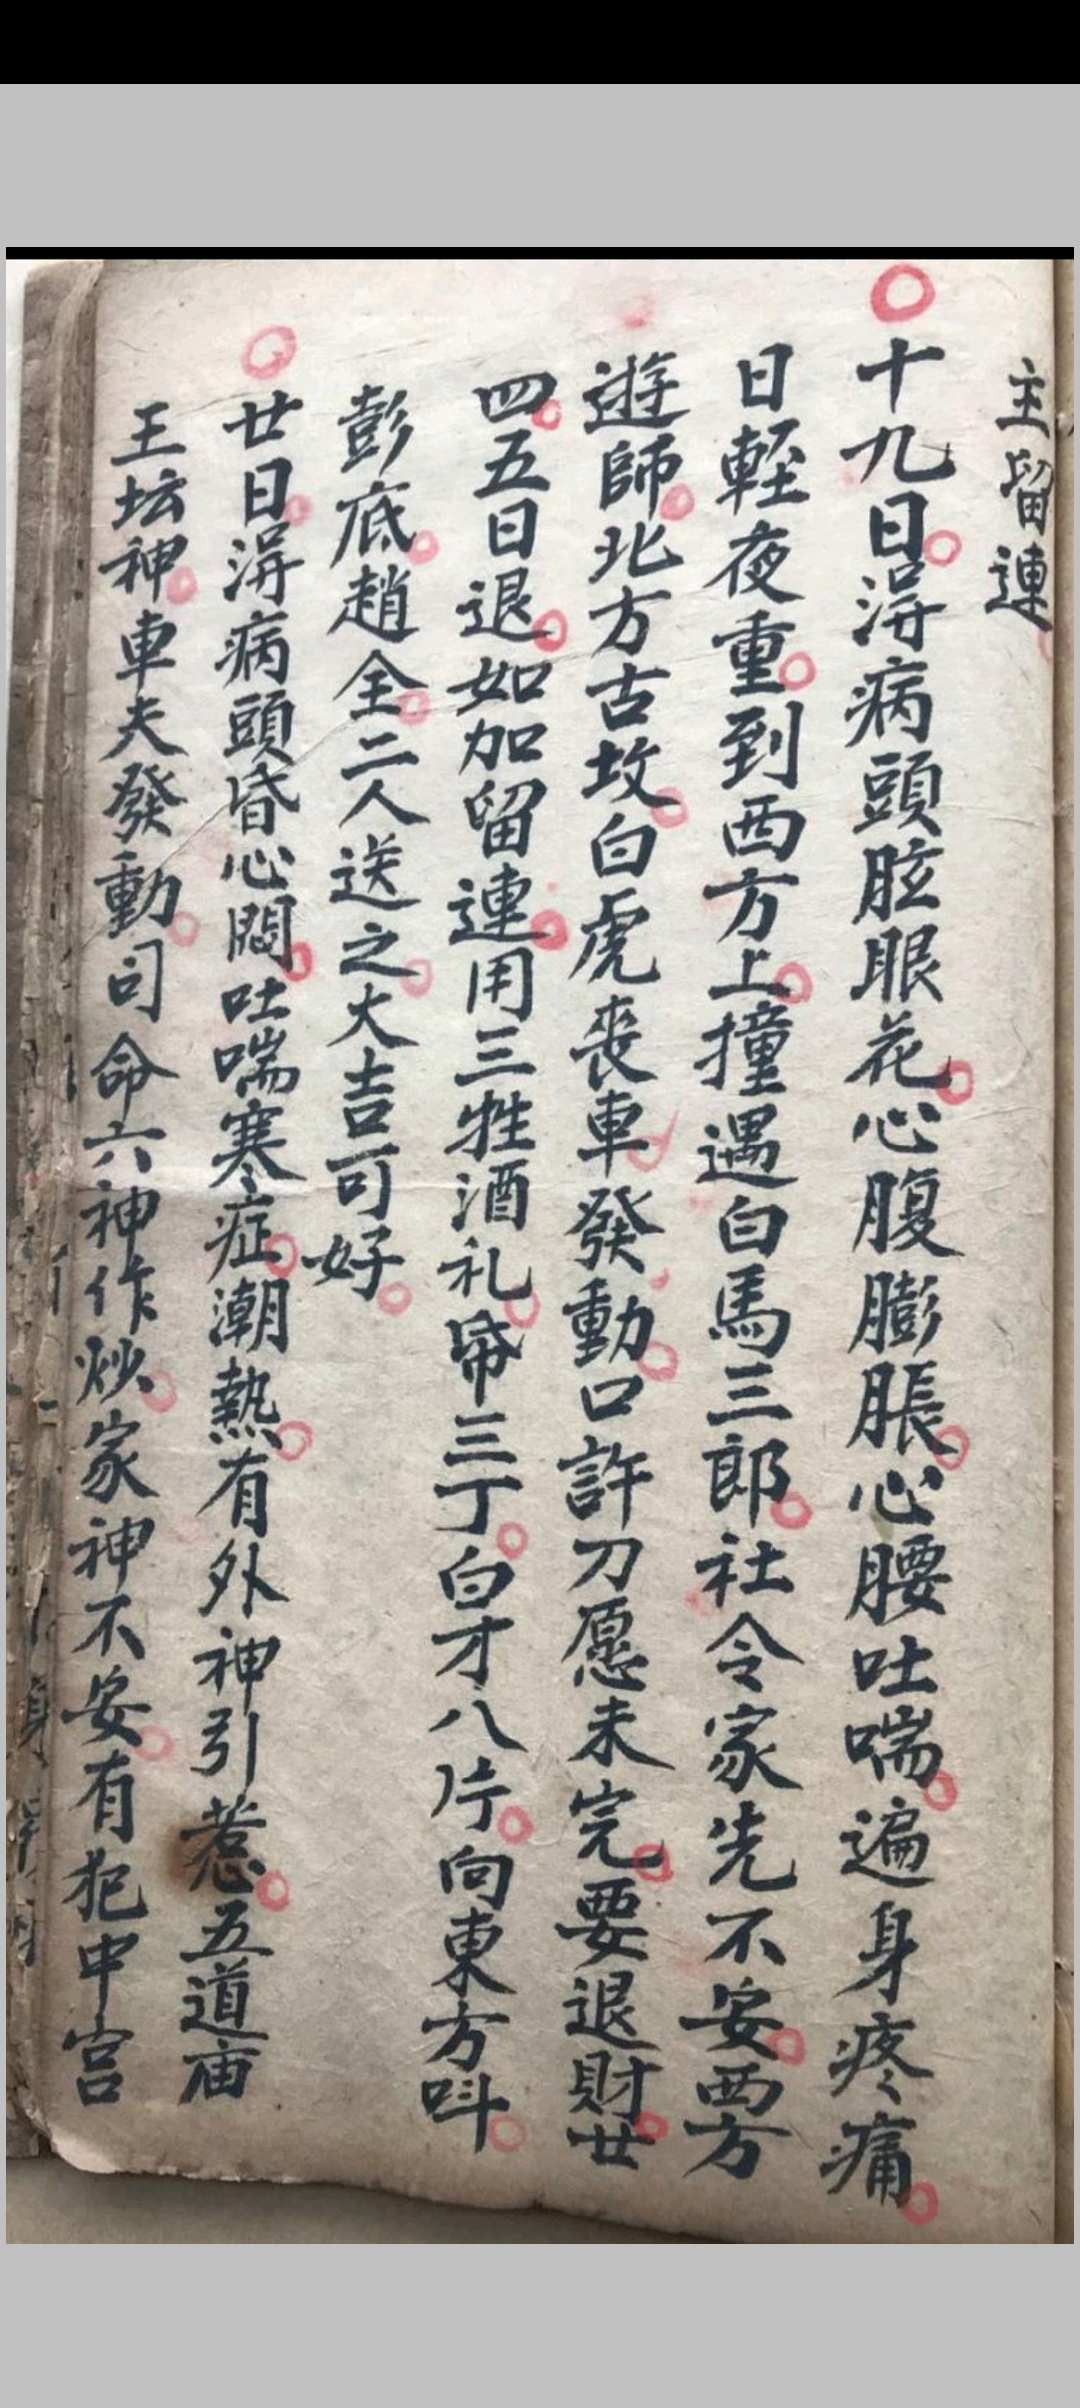 主留連
十九日浔病頭眩眼花心腹膨脹心腰吐喘遍身疼痛
日輕夜重到西方上撞遇白馬三郎社令家先不安西方
遊師北方古坟白虎喪車發動口許刀愿未完要退財廿
四五日退如加留連用三牲酒礼帋三丁白才八片向東方呌
彭底趙全二人送之大吉可好
廿日浔病頭昏心悶吐喘寒症潮熱有外神引惹五道庙
王坛神車夫發動司命六神作炒家神不安有犯中宫